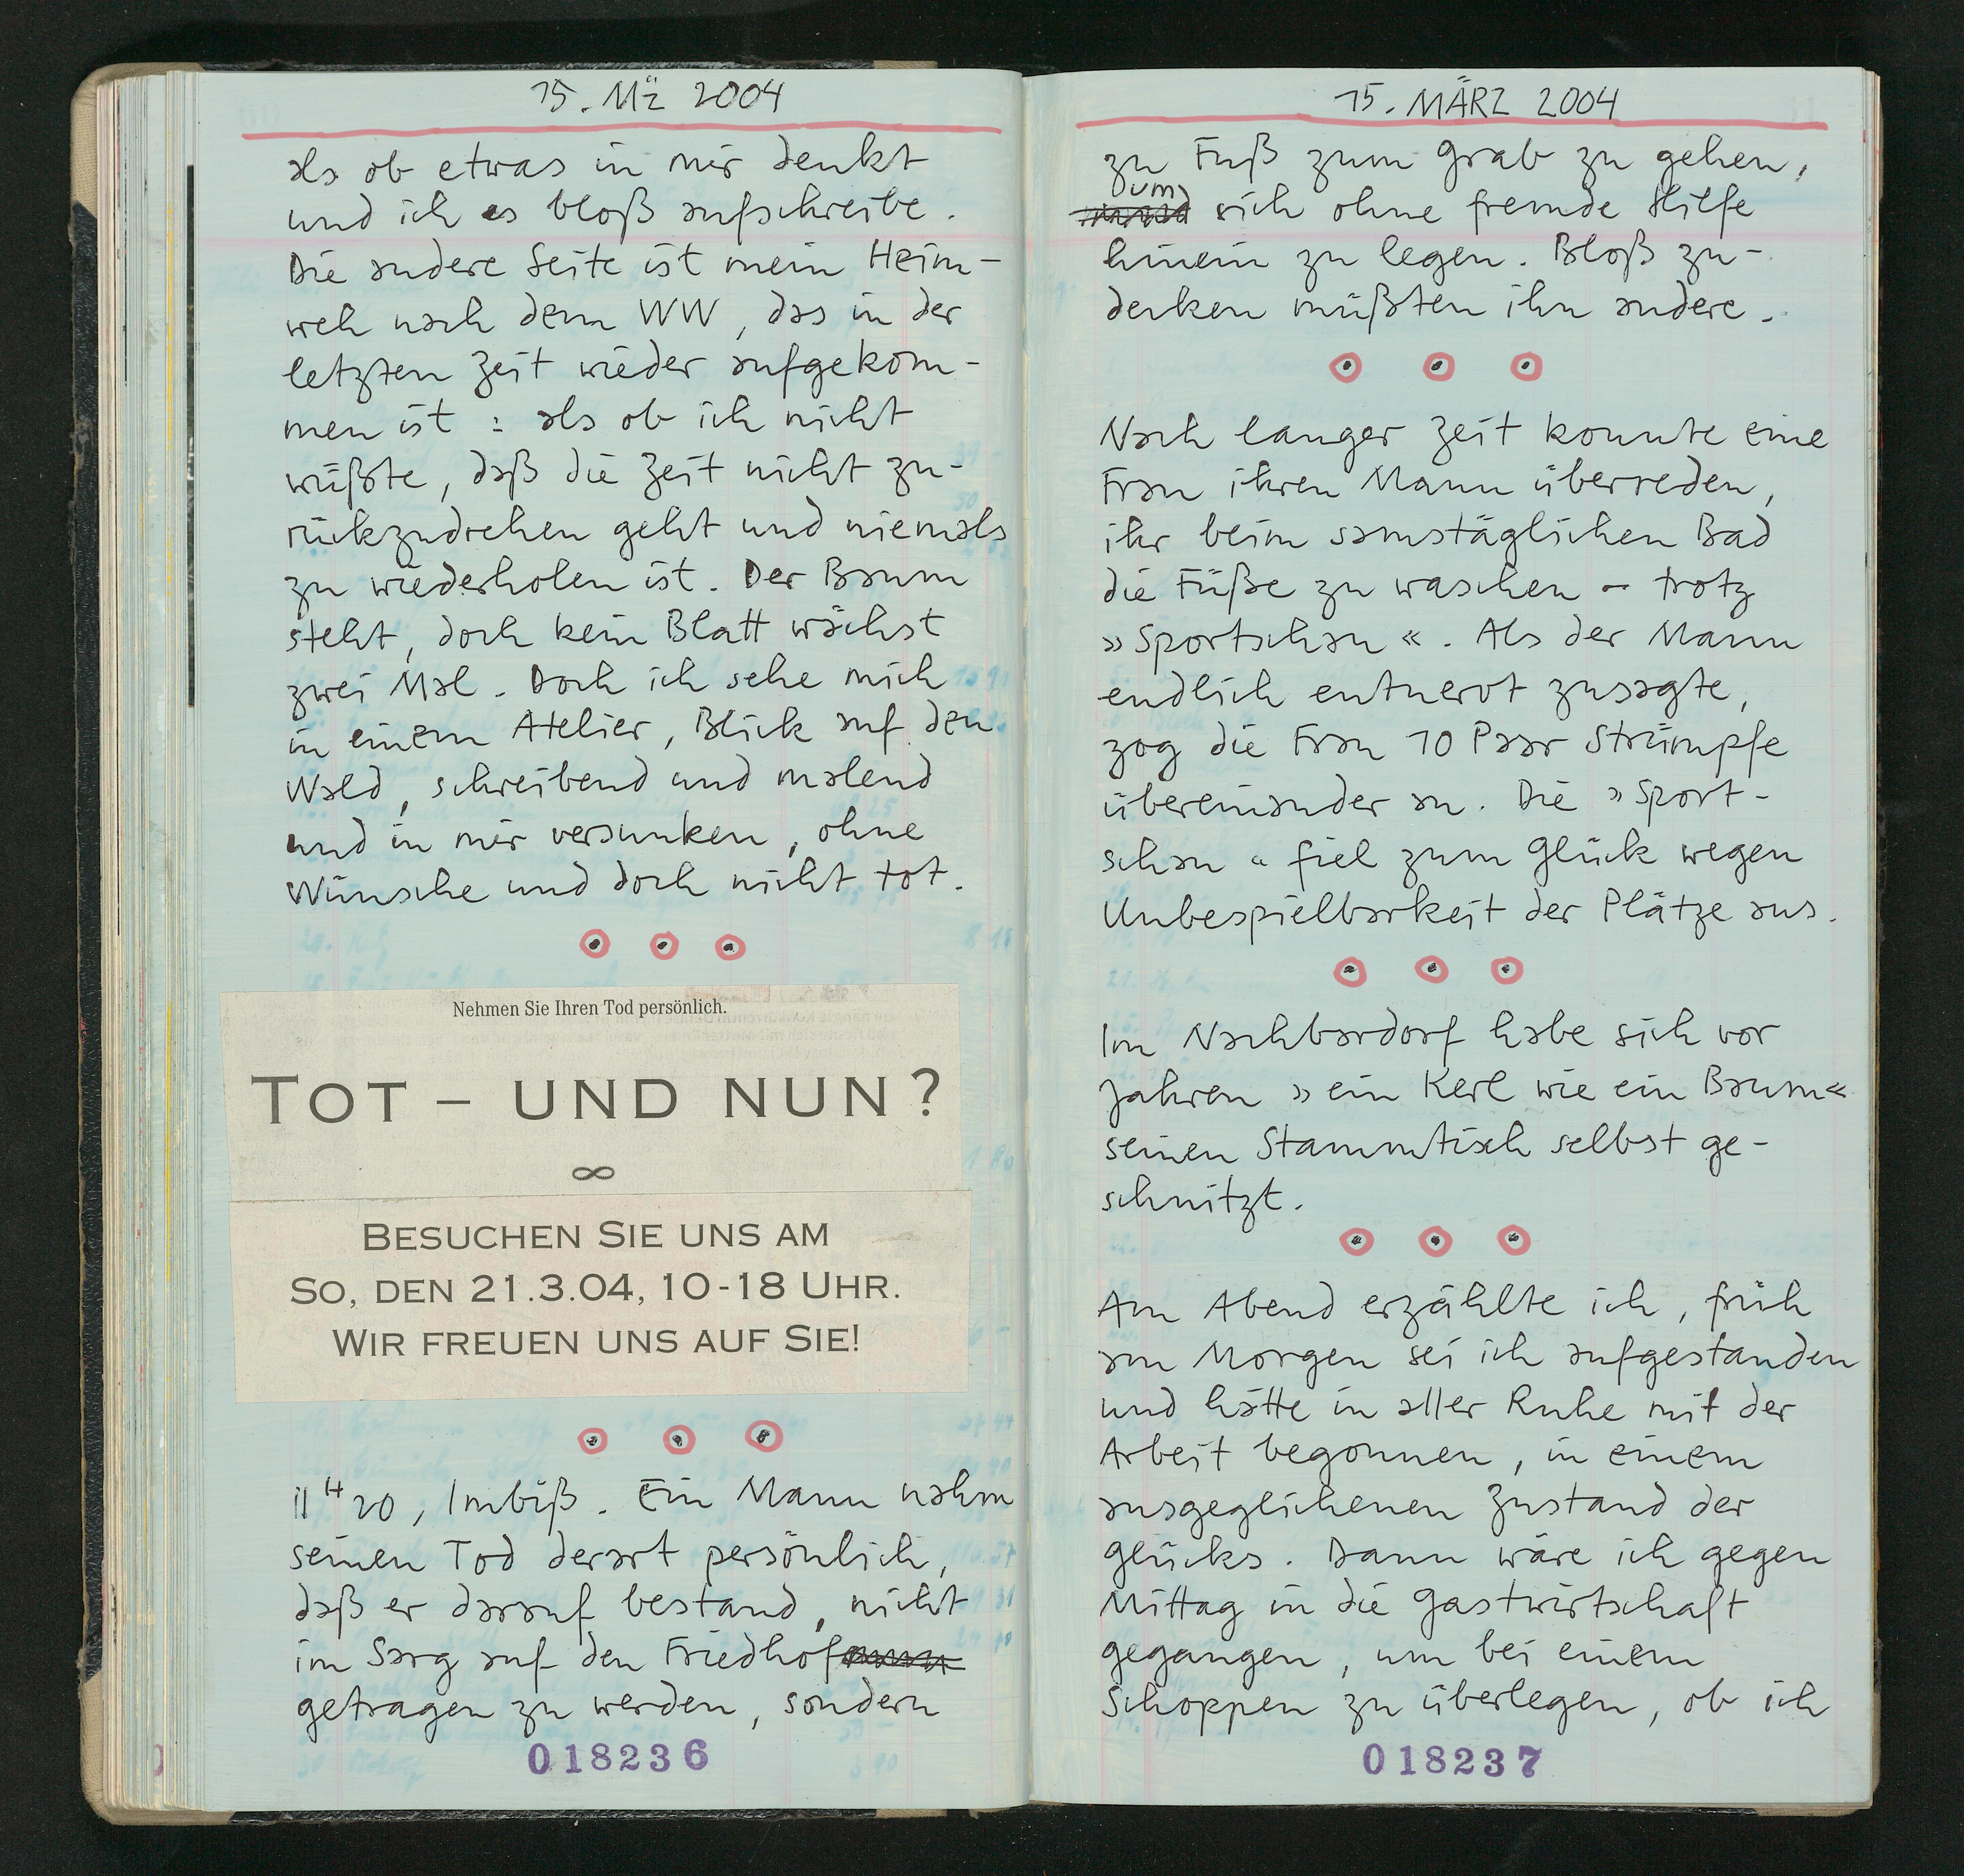 15. Mz̈ 2004
als ob etwas in mir denkt
und ich es bloß aufschreibe.
Die andere Seite ist mein Heim-
weh nach dem WW, das in der
letzten Zeit wieder aufgekom-
men ist : als ob ich nicht
wüßte, daß die Zeit nicht zu-
rückzudrehen geht und niemals
zu wiederholen ist. Der Baum
steht, doch kein Blatt wächst
zwei Mal. Doch ich sehe mich
in einem Atelier, Blick auf den
Wald, schreibend und malend
und in mir versunken, ohne
Wünsche und doch nicht tot.
Nehmen Sie Ihren Tod persönlich.
TOT – UND NUN?
∞
BESUCHEN SIE UNS AM
SO, DEN 21.3.04, 10-18 UHR.
WIR FREUEN UNS AUF SIE!
11 H 20, Imbiß. Ein Mann nahm
seinen Tod derart persönlich,
daß er darauf bestand, nicht
im Sarg auf den Friedhof
getragen zu werden, sondern
018236
15. MÄRZ 2004
zu Fuß zum Grab zu gehen,
um sich ohne fremde Hilfe
hinein zu legen. Bloß zu-
decken müßten ihn andere.
Nach langer Zeit konnte eine
Frau ihren Mann überreden,
ihr beim samstäglichen Bad
die Füße zu waschen – trotz
»Sportschau«. Als der Mann
endlich entnervt zusagte,
zog die Frau 10 Paar Strümpfe
übereinander an. Die »Sport-
schau« fiel zum Glück wegen
Unbespielbarkeit der Plätze aus.
Im Nachbardorf habe sich vor
Jahren »ein Kerl wie ein Baum«
seinen Stammtisch selbst ge-
schnitzt.
Am Abend erzählte ich, früh
am Morgen sei ich aufgestanden
und hätte in aller Ruhe mit der
Arbeit begonnen, in einem
ausgeglichenen Zustand der
Glücks. Dann wäre ich gegen
Mittag in die Gastwirtschaft
gegangen, um bei einem
Schoppen zu überlegen, ob ich
018237